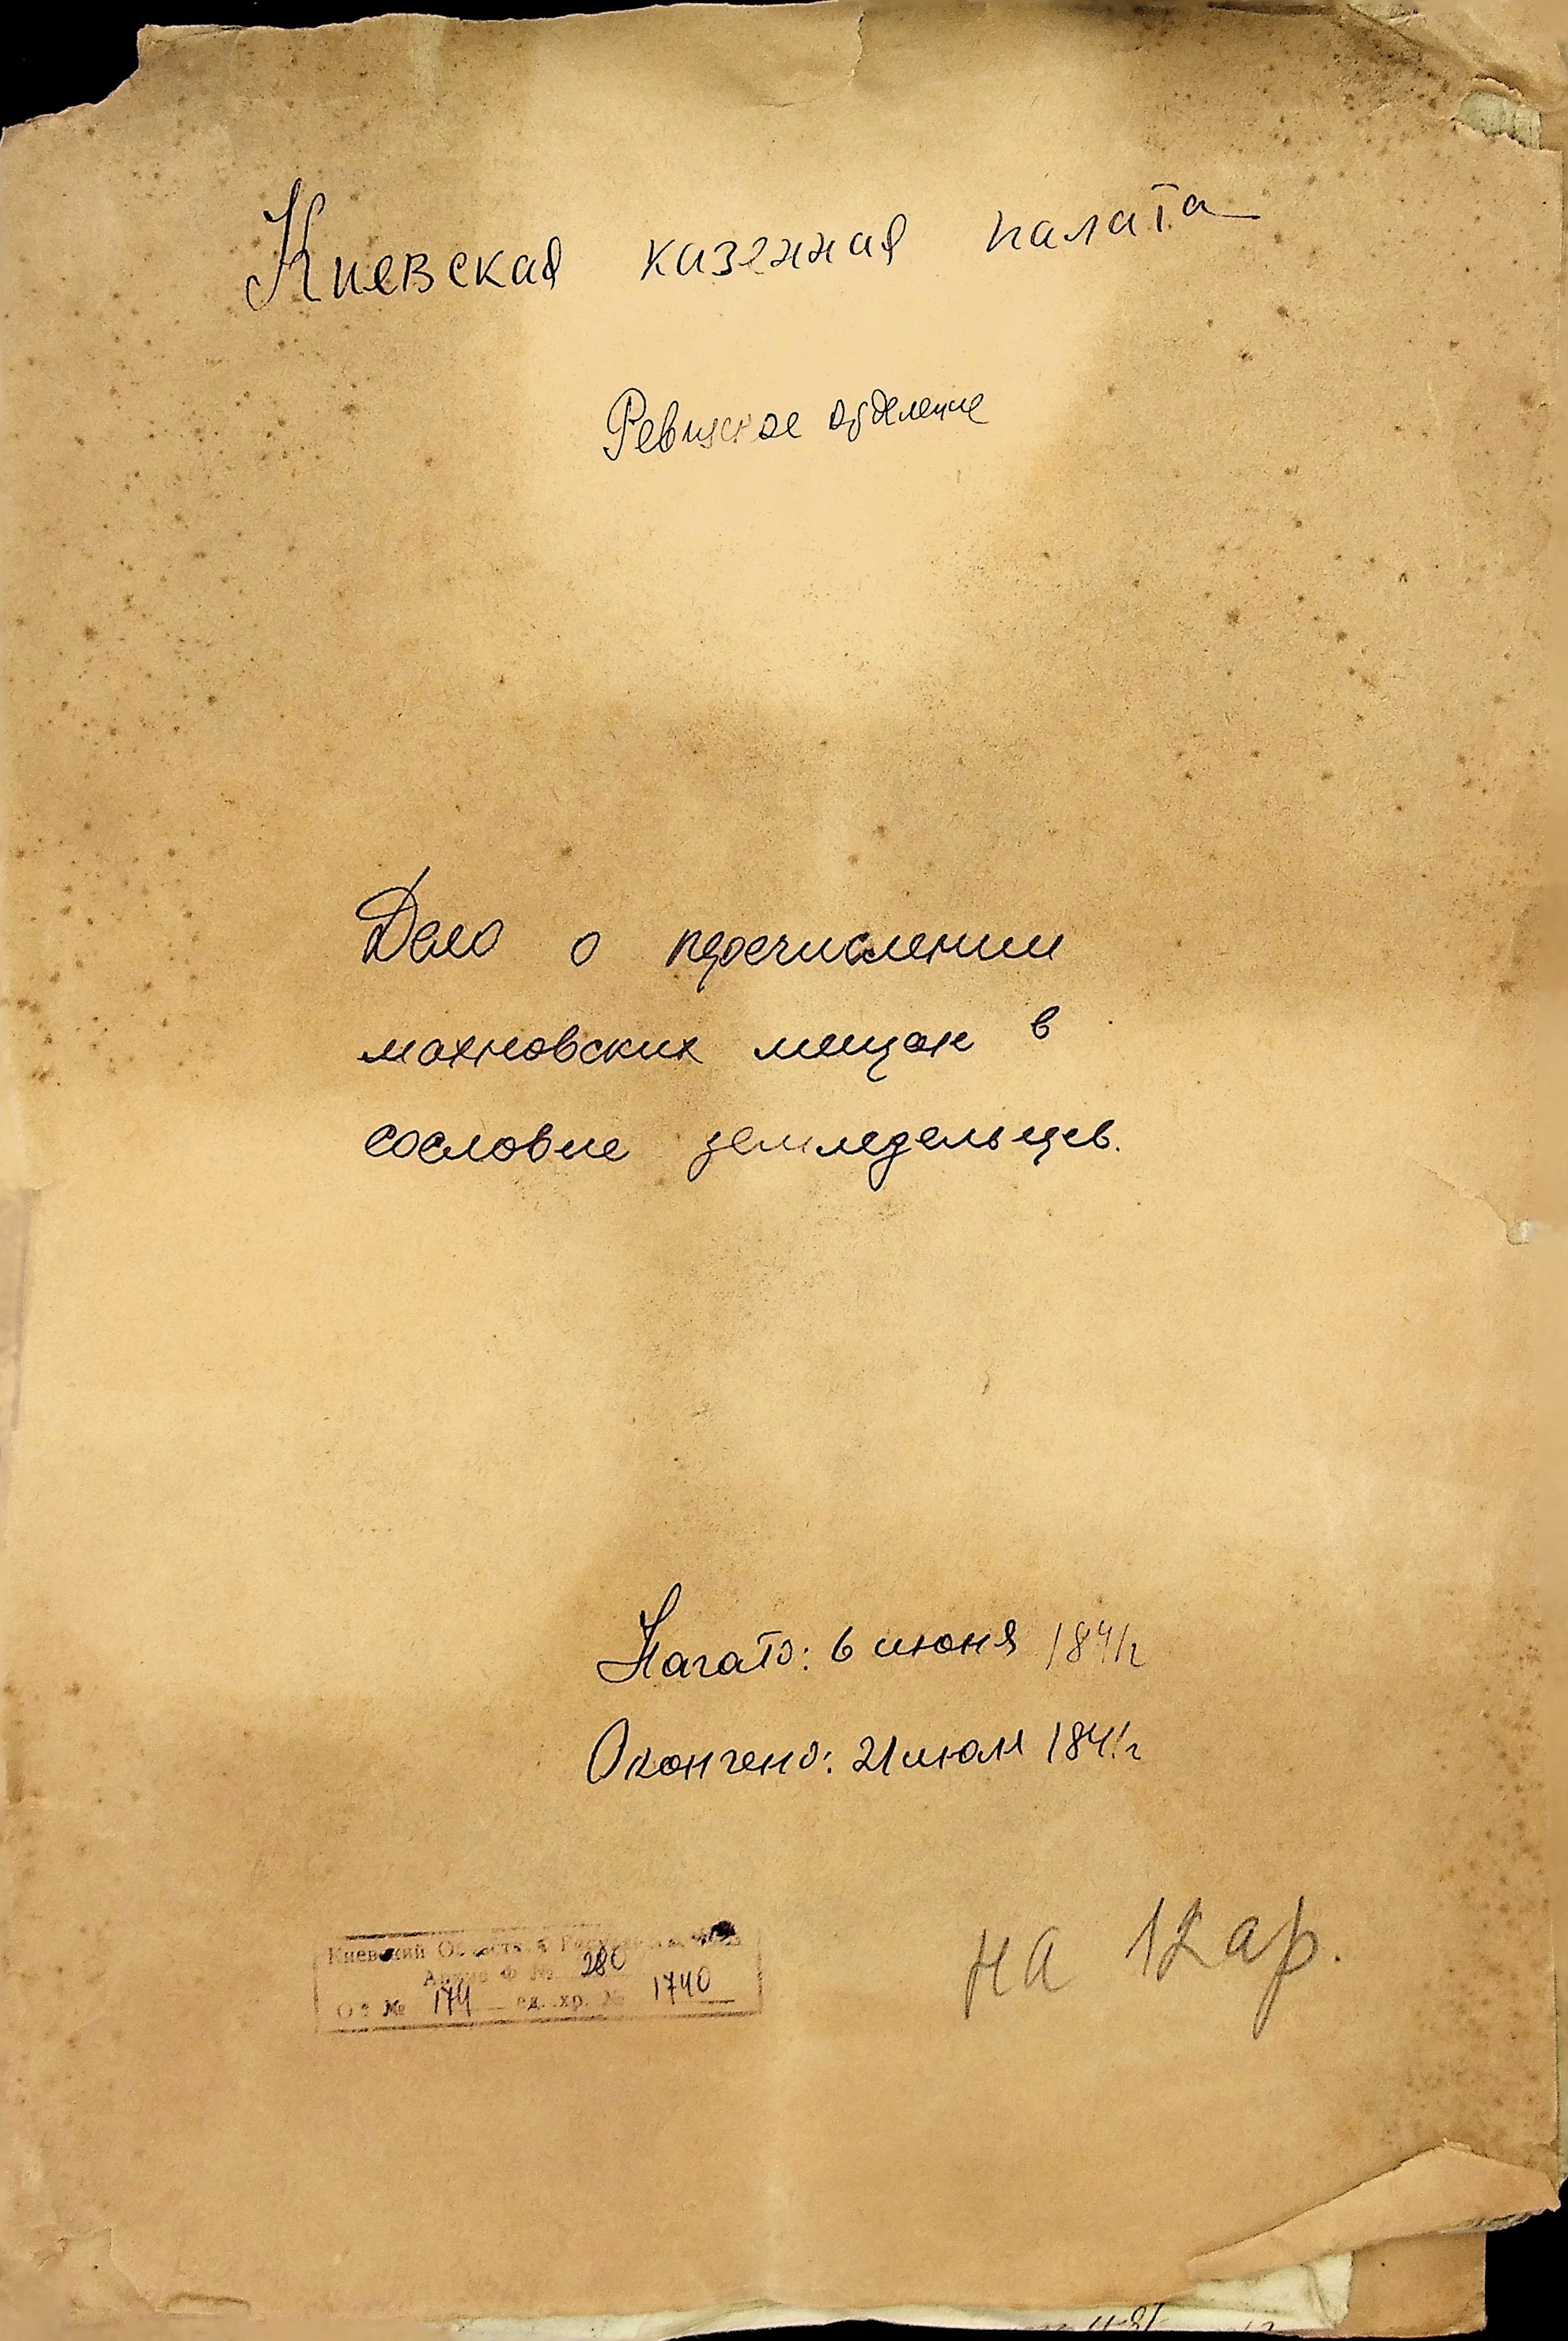 Киевская казенная палата
Ревизское отделение
Дело о перечислении
махновских мещан в
сословие земледельцев.
Начато: 6 июня 1841г
Окончено: 21 июля 1841г
Киевский
Архив Ф № 280
От № 174 ед. хр. № 1740
на 12 ар.